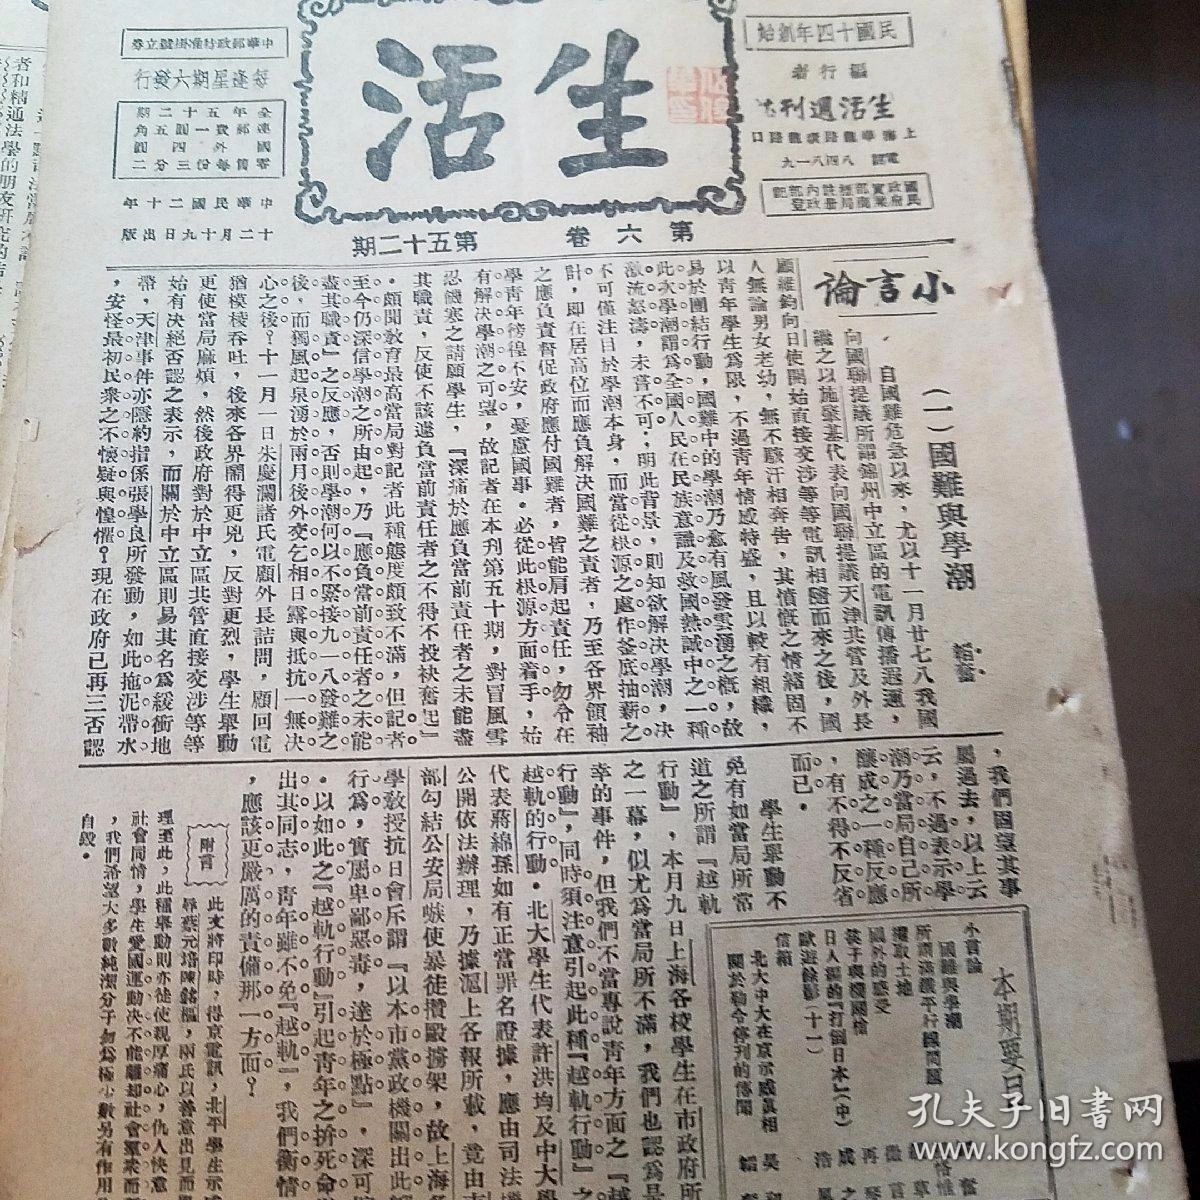 民國十四年創始
編行者
生活週刊社
上海華龍路環龍路口
電話八四八一九
生活
中華郵政特准掛號立券
每逢星期六發行
全年五十二期
連郵費一圓五角
國外四圓
零售每份三分二
中華民國二十年
十二月十九日出版
第六卷 第五十二期
小言論
(一)國難與學潮
韜奮
自國難危急以來,尤以十一月廿七八我國
向國聯提議所謂錦州中立區的電訊傳播遐邇,
繼之以施肇基代表向國聯提議天津共管及外長
顧維鈞向日使開始直接交涉等等電訊相隨而來之後,國
人無論男女老幼,無不駭汗相奔告,其憤慨之情緒固不
以青年學生爲限,不過青年情感特盛,且以較有組織,
易於團結行動,國難中的學潮乃愈有風發雲湧之概,故
此次學潮謂爲全國人民在民族意識及救國熱誠中之一種
激流怒濤,未嘗不可。明此背景,則知欲解決學潮,決
不可僅注目於學潮本身,而當從根源之處作釜底抽薪之
計,即在居高位而應負解決國難之責者,乃至各界領袖
之應負責督促政府應付國難者,皆能肩起責任,勿令在
學青年徬徨不安,憂慮國事。必從此根源方面着手,始
有解決學潮之可望,故記者在本刊第五十期,對冒風雪
忍饑寒之請願學生,『深痛於應負當前責任者之未能盡
其職責,反使不該遽負當前責任者之不得不投袂奮起』
。頗聞教育最高當局對記者此種態度頗致不滿,但記者
至今仍深信學潮之所由起,乃『應負當前責任者之未能
盡其職責』之反應,否則學潮何以不緊接九一八發難之
後,而獨風起泉湧於兩月後外交乞相日露與抵抗一無決
心之後?十一月一日朱慶瀾諸氏電顧外長詰問,顧回電
猶模棱吞吐,後來各界鬧得更兇,反對更烈,學生舉動
更使當局麻煩,然後政府對於中立區共管直接交涉等等
始有決絕否認之表示,而關於中立區則易其名爲緩衝地
帶,天津事件亦隱約指係張學良所發動,如此拖泥帶水
,安怪最初民衆之不懷疑與惶懼?現在政府已再三否認
,我們固望其事
屬過去,以上云
云,不過表示學
潮乃當局自己所
釀成之一種反應
,有不得不反省
而已。
學生舉動不
免有如當局所常
道之所謂『越軌
行動』,本月九日上海各校學生在市政府所
之一幕,似尤爲當局所不滿,我們也認爲是
幸的事件,但我們不當專說青年方面之『越
行動』,同時須注意引起此種『越軌行動』之
越軌的行動。北大學生代表許洪均及中大學
代表蔣綿孫如有正當罪名證據,應由司法機
公開依法辦理,乃據滬上各報所載,竟由市
部勾結公安局嗾使暴徒攢毆擄架,故上海各
學教授抗日會斥謂『以本市黨政機關出此卑
行爲,實屬卑鄙惡毒,達於極點』,深可痛
。以如此之『越軌行動』引起青年之拚死命
出其同志,青年雖不免『越軌』,我們衡情
,應該更嚴厲的責備那一方面?
附言
此文將印時,得京電訊,北平學生示威
辱蔡元培陳銘樞,兩氏以善意出見而
理至此,此種舉動則亦徒使親厚痛心,仇人快意
社會同情,學生愛國運動決不能離却社會羣衆而
,我們希望大多數純潔分子勿爲極少數另有作用
自毀。
本期要目
小言論
國難與學潮
所謂滿鐵平行線問題
攫取土地
國外的感受
筷子與機關槍
日人編的『打倒日本』(中)
歐遊餘影(十一)
信箱
北大中大在京示威真相
關於勒令停刊的傳聞
孔夫子旧书网
www.kongfz.com